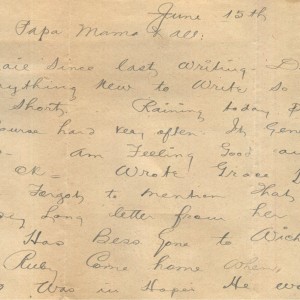 June 15th
Papa Mama & all:
Since last Writing.
new to Write so
Short. Raining today
hard very often. Its
am Feeling Good
OK = Wrote Grace
Forgot to mention That
Long letter from her
Has Bess gone to
Ruby Come home when
Was in He